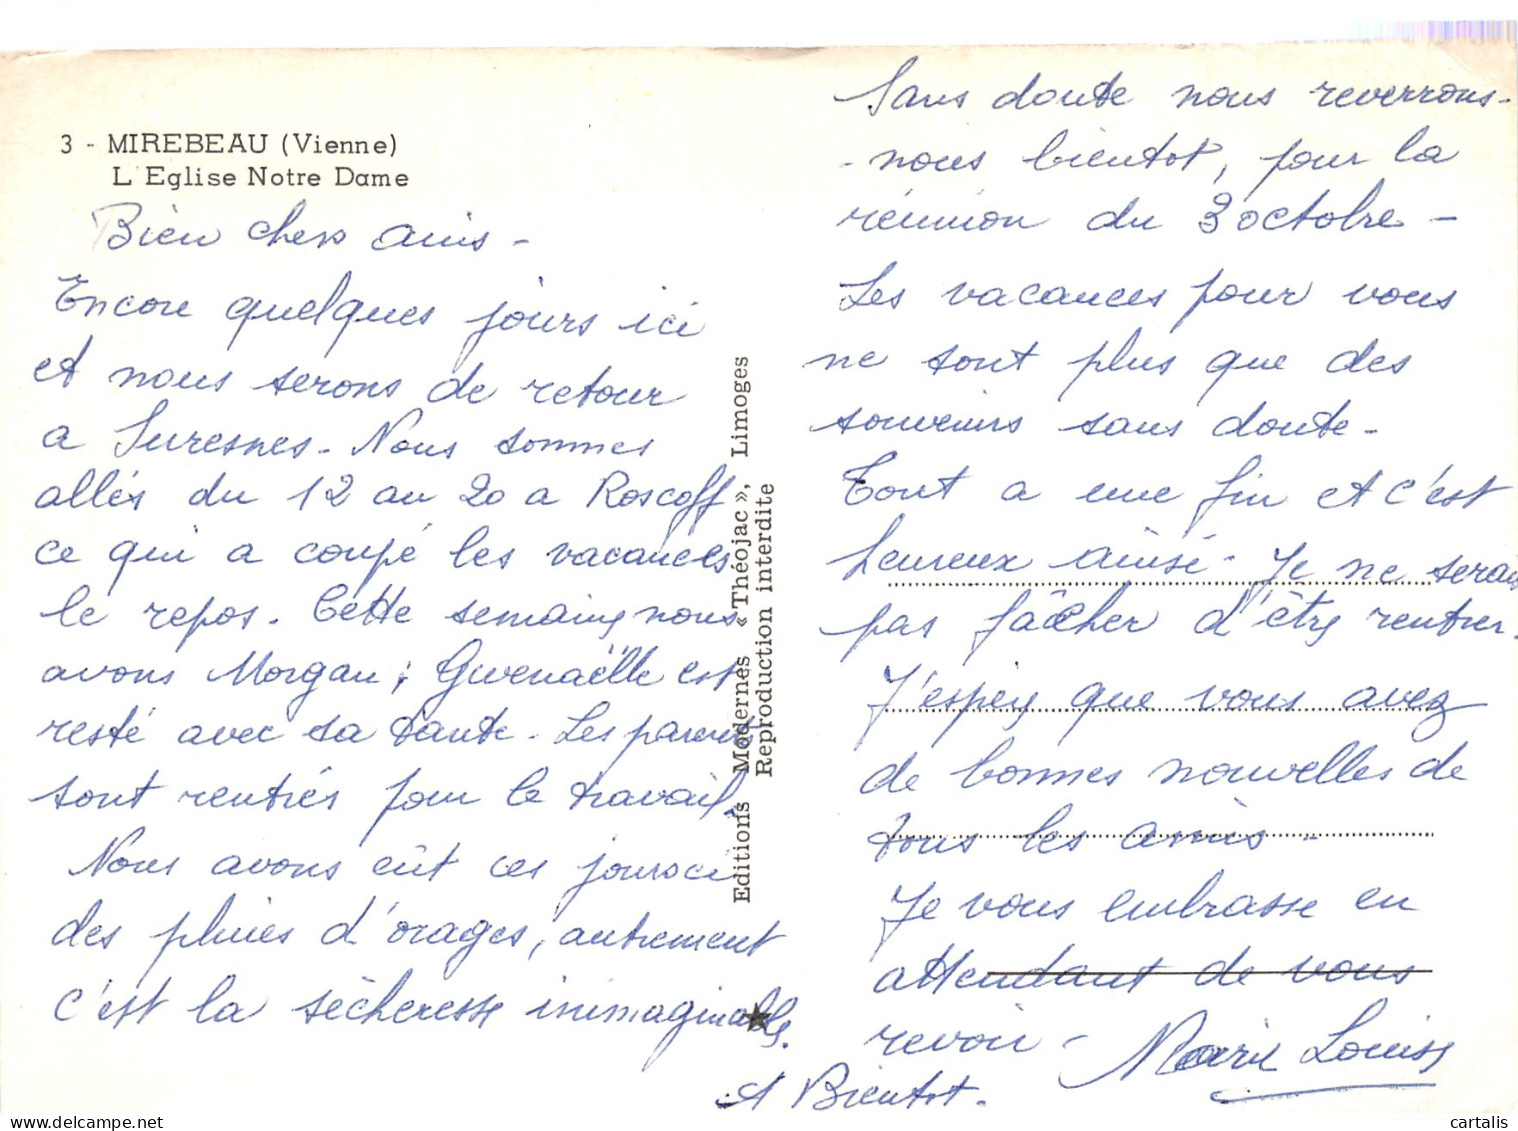 3 - MIREBEAU (Vienne)
L'Eglise Notre Dame
Bien chers amis -
Encore quelques jours ici
et nous serons de retour
a Suresnes - Nous sommes
allés du 12 au 20 a Roscoff
ce qui a coupé les vacances
le repos. Cette semaine nous
avons Morgan ; Gwenaëlle est
resté avec sa tante - Les parents
sont rentrés pour le travail.
Nous avons eût ces jours ci
des pluies d'orages, autrement
c'est la sècheresse inimaginable.
A Bientot.
Editions Modernes « Théojac », Limoges
Reproduction interdite
Sans doute nous reverrons-
-nous bientot, pour la
réunion du 3 octobre -
Les vacances pour vous
ne sont plus que des
souvenirs sans doute -
Tout a une fin et c'est
heureux ainsi - Je ne serais
pas fâcher d'être rentrer.
J'espère que vous avez
de bonnes nouvelles de
tous les amis -
Je vous embrasse en
attendant de vous
revoir - Marie Louise
cartalis